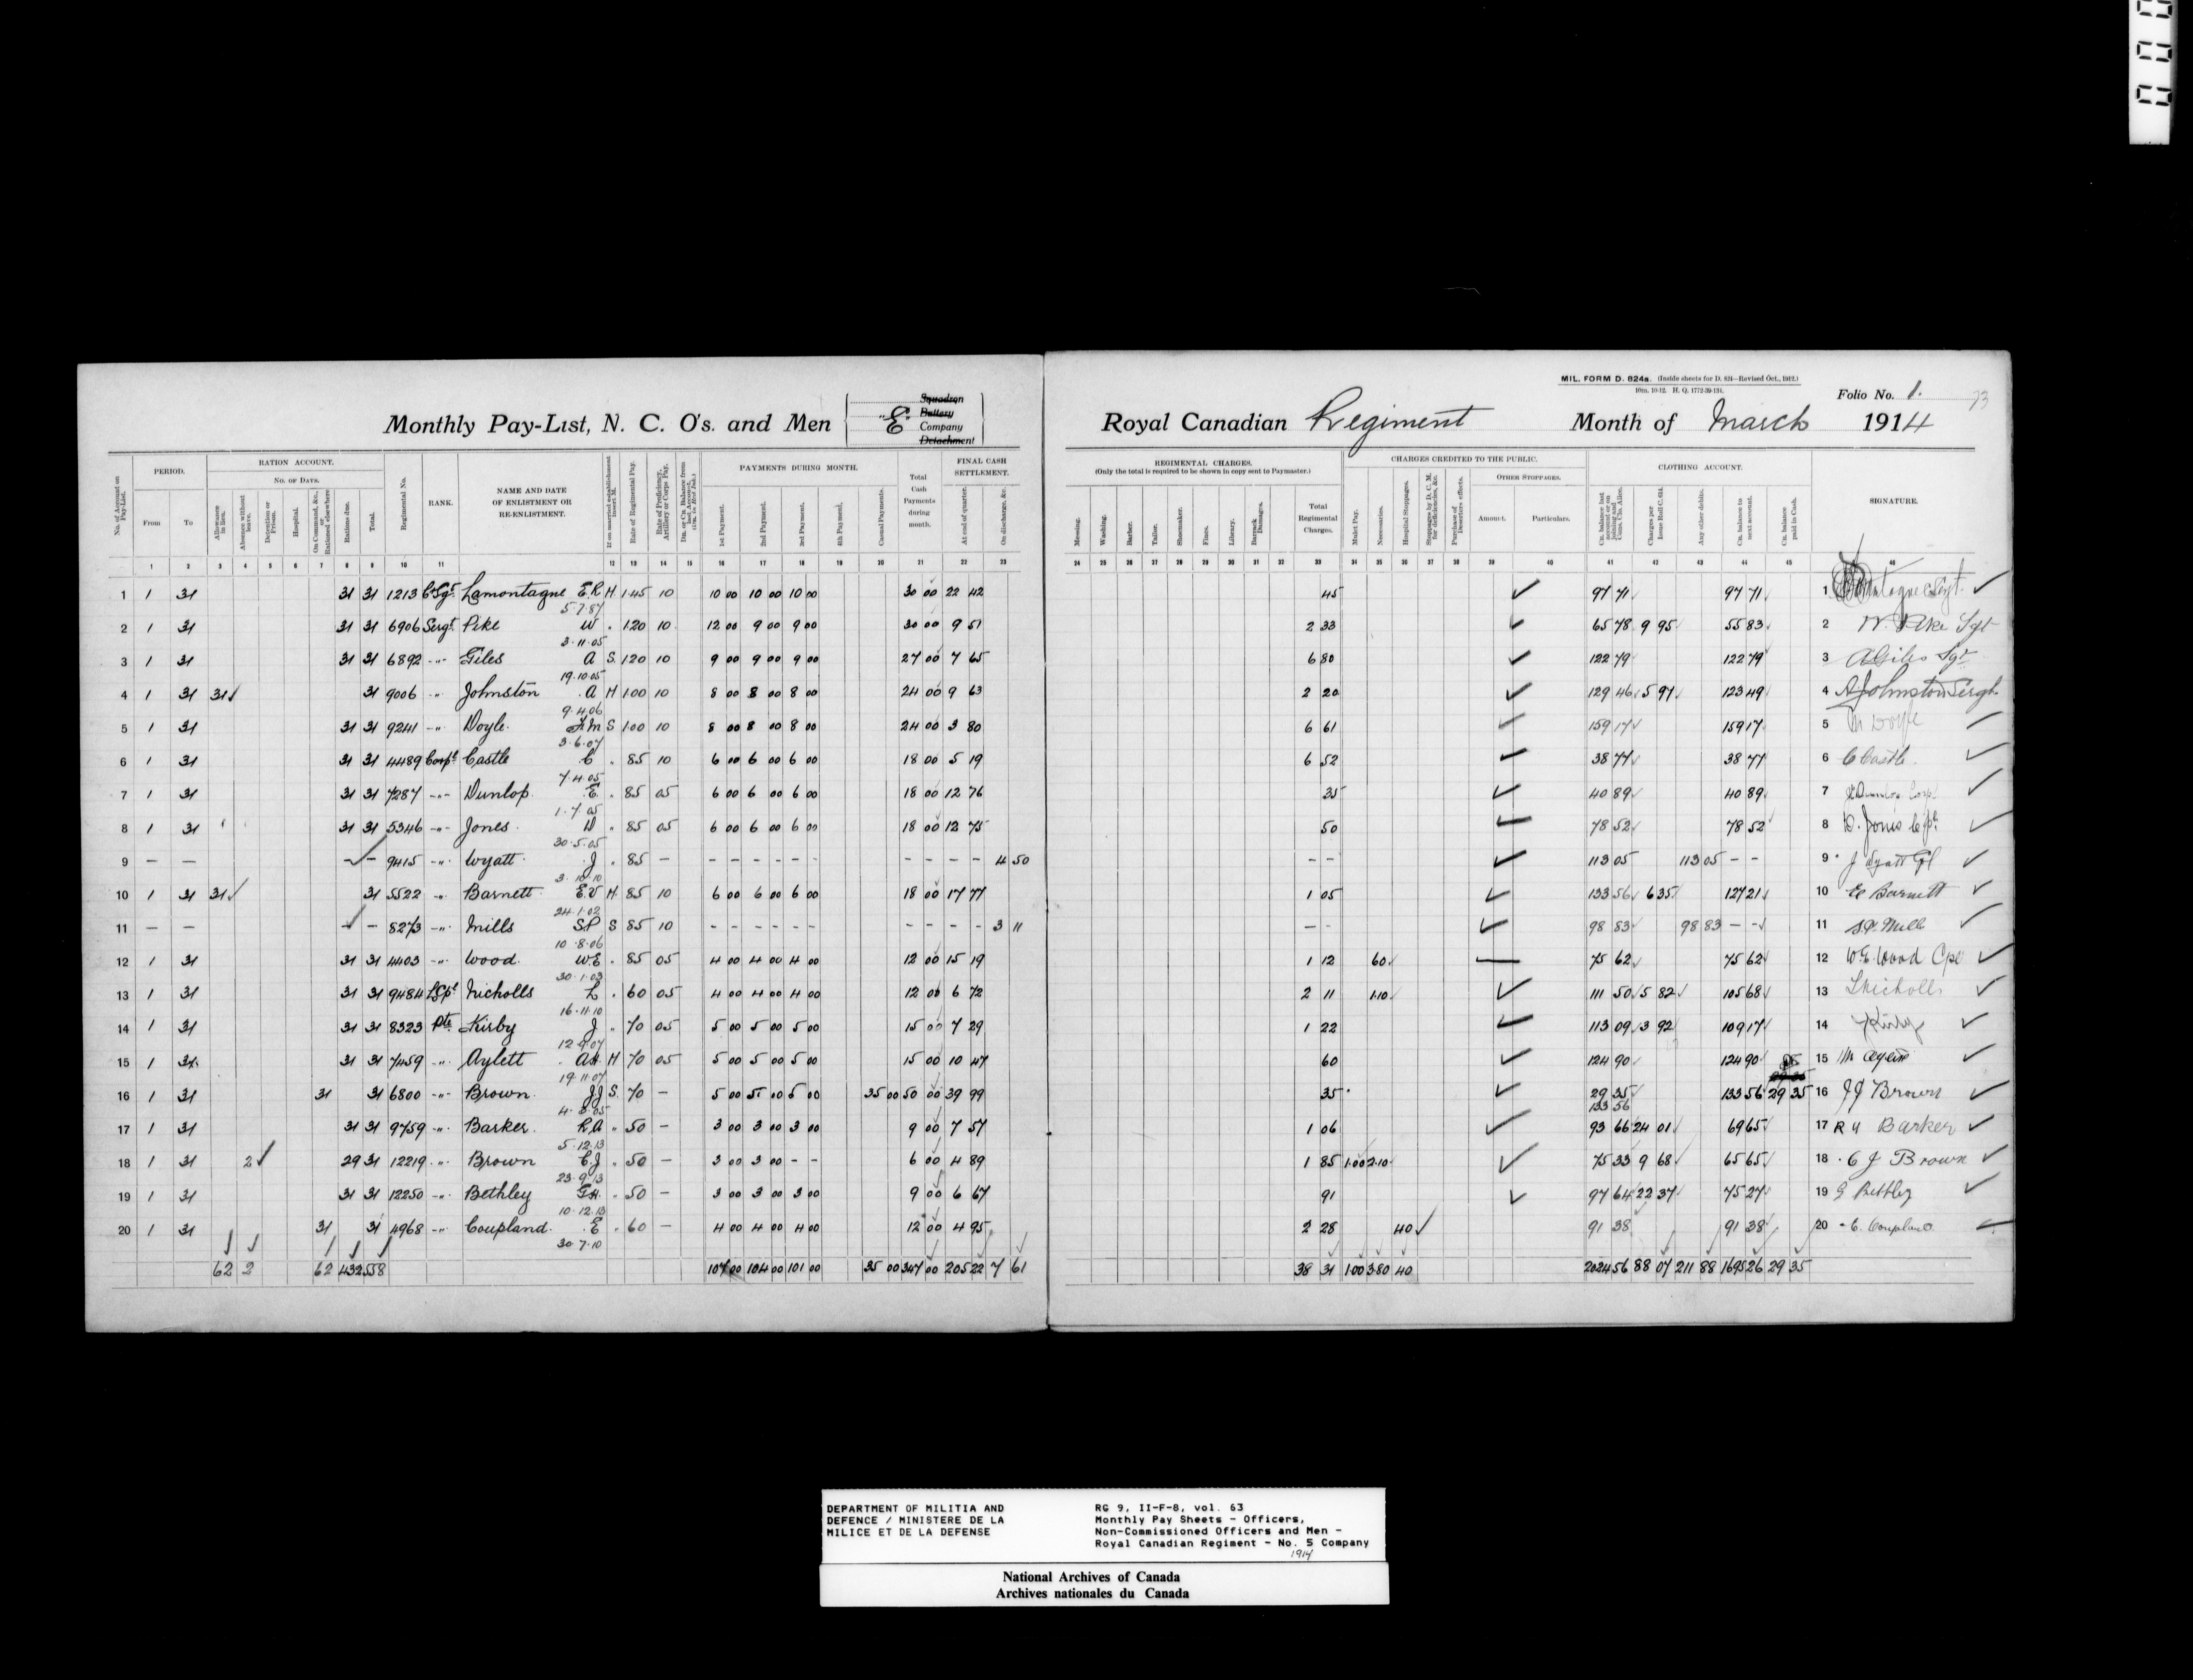 MIL. FORM D. 824a. (Inside sheets for D. 824—Revised Oct., 1912.)
10m. 10-12. H. Q. 1772-39-131.
Folio No. 1.
Monthly Pay-List, N. C. O's. and Men
Squadron
Battery
"E" Company
Detachment
Royal Canadian Regiment Month of March 1914
No. of Account on Pay-List.
PERIOD. From To
RATION ACCOUNT.
No. of Days.
Allowance in lieu. Absence without leave. Detention or Prison. Hospital. On Command, &c., or Rationed elsewhere Rations due. Total.
Regimental No. RANK. NAME AND DATE OF ENLISTMENT OR RE-ENLISTMENT.
If on married establishment insert M. Rate of Regimental Pay. Rate of Proficiency, Artillery or Corps Pay.
PAYMENTS DURING MONTH.
1st Payment. 2nd Payment. 3rd Payment. 4th Payment. Casual Payments.
Total Cash Payments during month.
FINAL CASH SETTLEMENT.
At end of quarter. On discharge, &c.
REGIMENTAL CHARGES.
(Only the total is required to be shown in copy sent to Paymaster.)
Messing. Washing. Barber. Tailor. Shoemaker. Fines. Library. Barrack Damages. Total Regimental Charges.
CHARGES CREDITED TO THE PUBLIC.
Mulct Pay. Necessaries. Hospital Stoppages. Stoppages by D. C. M. for deficiencies, &c. Purchase of Deserters effects.
OTHER STOPPAGES.
Amount. Particulars.
CLOTHING ACCOUNT.
Charges per Issue Roll C. 624. Any other debits. Cr. balance to next account. Cr. balance paid in Cash.
SIGNATURE.
1 2 3 4 5 6 7 8 9 10 11 12 13 14 15 16 17 18 19 20 21 22 23 24 25 26 27 28 29 30 31 32 33 34 35 36 37 38 39 40 41 42 43 44 45 46
1 1 31 31 31 1213 C Sgt. Lamontagne E.R M 1.45 10 10 00 10 00 10 00 30 00 22 42 45 97 71 97 71 1
5.7.87
2 1 31 31 31 6906 Sergt. Pike W . 1.20 10 12 00 9 00 9 00 30 00 9 51 2 33 65 78 9 95 55 83 2 W. Pike Sgt
3.11.05
3 1 31 31 31 6892 -"- Giles A S. 1.20 10 9 00 9 00 9 00 27 00 7 65 6 80 122 79 122 79 3 A Giles Sgt
19.10.05
4 1 31 31 31 9006 " Johnston A M 1.00 10 8 00 8 00 8 00 24 00 9 63 2 20 129 46 5 97 123 49 4 A Johnston Sergt
9.4.06
5 1 31 31 31 9241 -"- Doyle. S 1.00 10 8 00 8 00 8 00 24 00 3 80 6 61 159 17 159 17 5 M Doyle
3.6.07
6 1 31 31 31 4489 Corpl Castle C . 85 10 6 00 6 00 6 00 18 00 5 19 6 52 38 77 38 77 6 C Castle.
7.4.05
7 1 31 31 31 7287 -"- Dunlop. E. . 85 05 6 00 6 00 6 00 18 00 12 76 35 40 89 40 89 7 Dunlop Corpl
1.7.05
8 1 31 31 31 5346 -"- Jones. D . 85 05 6 00 6 00 6 00 18 00 12 75 50 78 52 78 52 8 D. Jones Cpl.
30.5.05
9 — — - 9415 -"- Wyatt. J . 85 — - - - - - - - - - - 4 50 - - 113 05 113 05 - - 9 J Wyatt Cpl
3.10.10
10 1 31 31 31 5522 " Barnett E.V M. 85 10 6 00 6 00 6 00 18 00 17 77 1 05 133 56 6 35 127 21 10 Barnett
24.1.02
11 — — - 8273 -"- Mills S.P S 85 10 - - - - - - - - - - 3 11 - - 98 83 98 83 - - 11 Mills
10.8.06
12 1 31 31 31 4403 -"- Wood. W.E . 85 05 4 00 4 00 4 00 12 00 15 19 1 12 60 75 62 75 62 12 W.E. Wood Cpl
30.1.03
13 1 31 31 31 9484 L Cpl Nicholls L . 60 05 4 00 4 00 4 00 12 00 6 72 2 11 1.10 111 50 5 82 105 68 13 L Nicholls
16.11.10
14 1 31 31 31 8323 Pte. Kirby J . 70 05 5 00 5 00 5 00 15 00 7 29 1 22 113 09 3 92 109 17 14 J Kirby
12.9.07
15 1 31. 31 31 7459 -"- Aylett A.H. M 70 05 5 00 5 00 5 00 15 00 10 47 60 124 90 124 90 15
19.11.07
16 1 31 31 31 6800 -"- Brown. J.J S. 70 — 5 00 5 00 5 00 35 00 50 00 39 99 35 29 35 133 56 29 35 16 J J Brown
133 56
17 1 31 31 31 9759 -"- Barker. R.A " 50 — 3 00 3 00 3 00 9 00 7 57 1 06 93 66 24 01 69 65 17 Barker
5.12.13
18 1 31 2 29 31 12219 -"- Brown C.J . 50 — 3 00 3 00 - - 6 00 4 89 1 85 1.00 2.10 75 33 9 68 65 65 18 C J Brown
23.9.13
19 1 31 31 31 12250 -"- Bethley G.H. . 50 — 3 00 3 00 3 00 9 00 6 67 91 97 64 22 37 75 27 19 G Bethley
10.12.13
20 1 31 31 31 4968 -"- Coupland. E . 60 — 4 00 4 00 4 00 12 00 4 95 2 28 40 91 38 91 38 20 E. Coupland
30.7.10
62 2 62 432 558 107 00 104 00 101 00 35 00 347 00 205 22 7 61 38 31 1.00 3.80 40 2024 56 88 07 211 88 1695 26 29 35
DEPARTMENT OF MILITIA AND
DEFENCE / MINISTERE DE LA
MILICE ET DE LA DEFENSE
RG 9, II-F-8, vol. 63
Monthly Pay Sheets - Officers,
Non-Commissioned Officers and Men -
Royal Canadian Regiment - No. 5 Company
1914
National Archives of Canada
Archives nationales du Canada